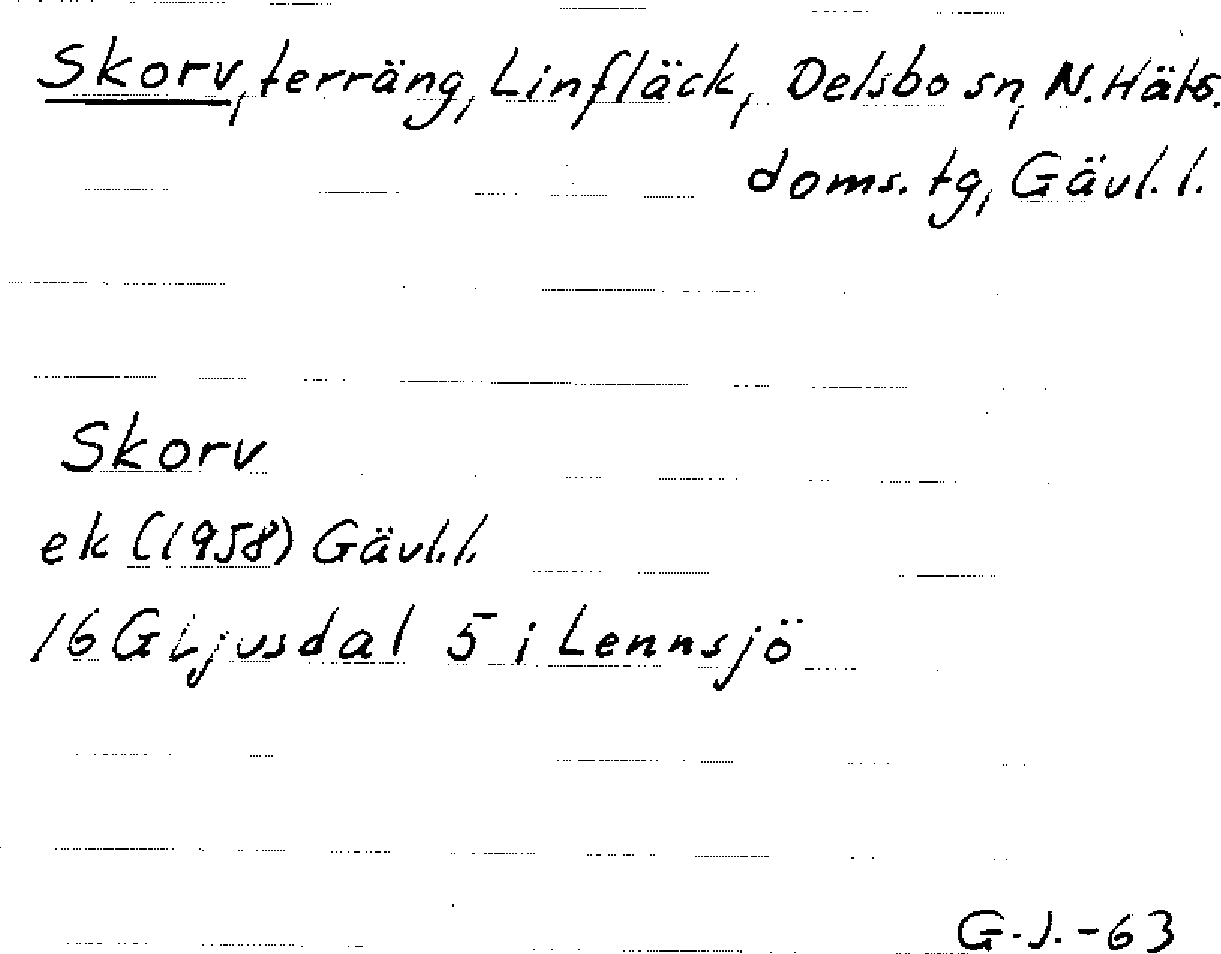 Skorv, terräng, Linfläck, Delsbo sn, N. Häls.
doms. tg, Gävl. l.
Skorv
ek (1958) Gävl. l.
16 G Ljusdal 5 i Lennsjö
G. J. -63